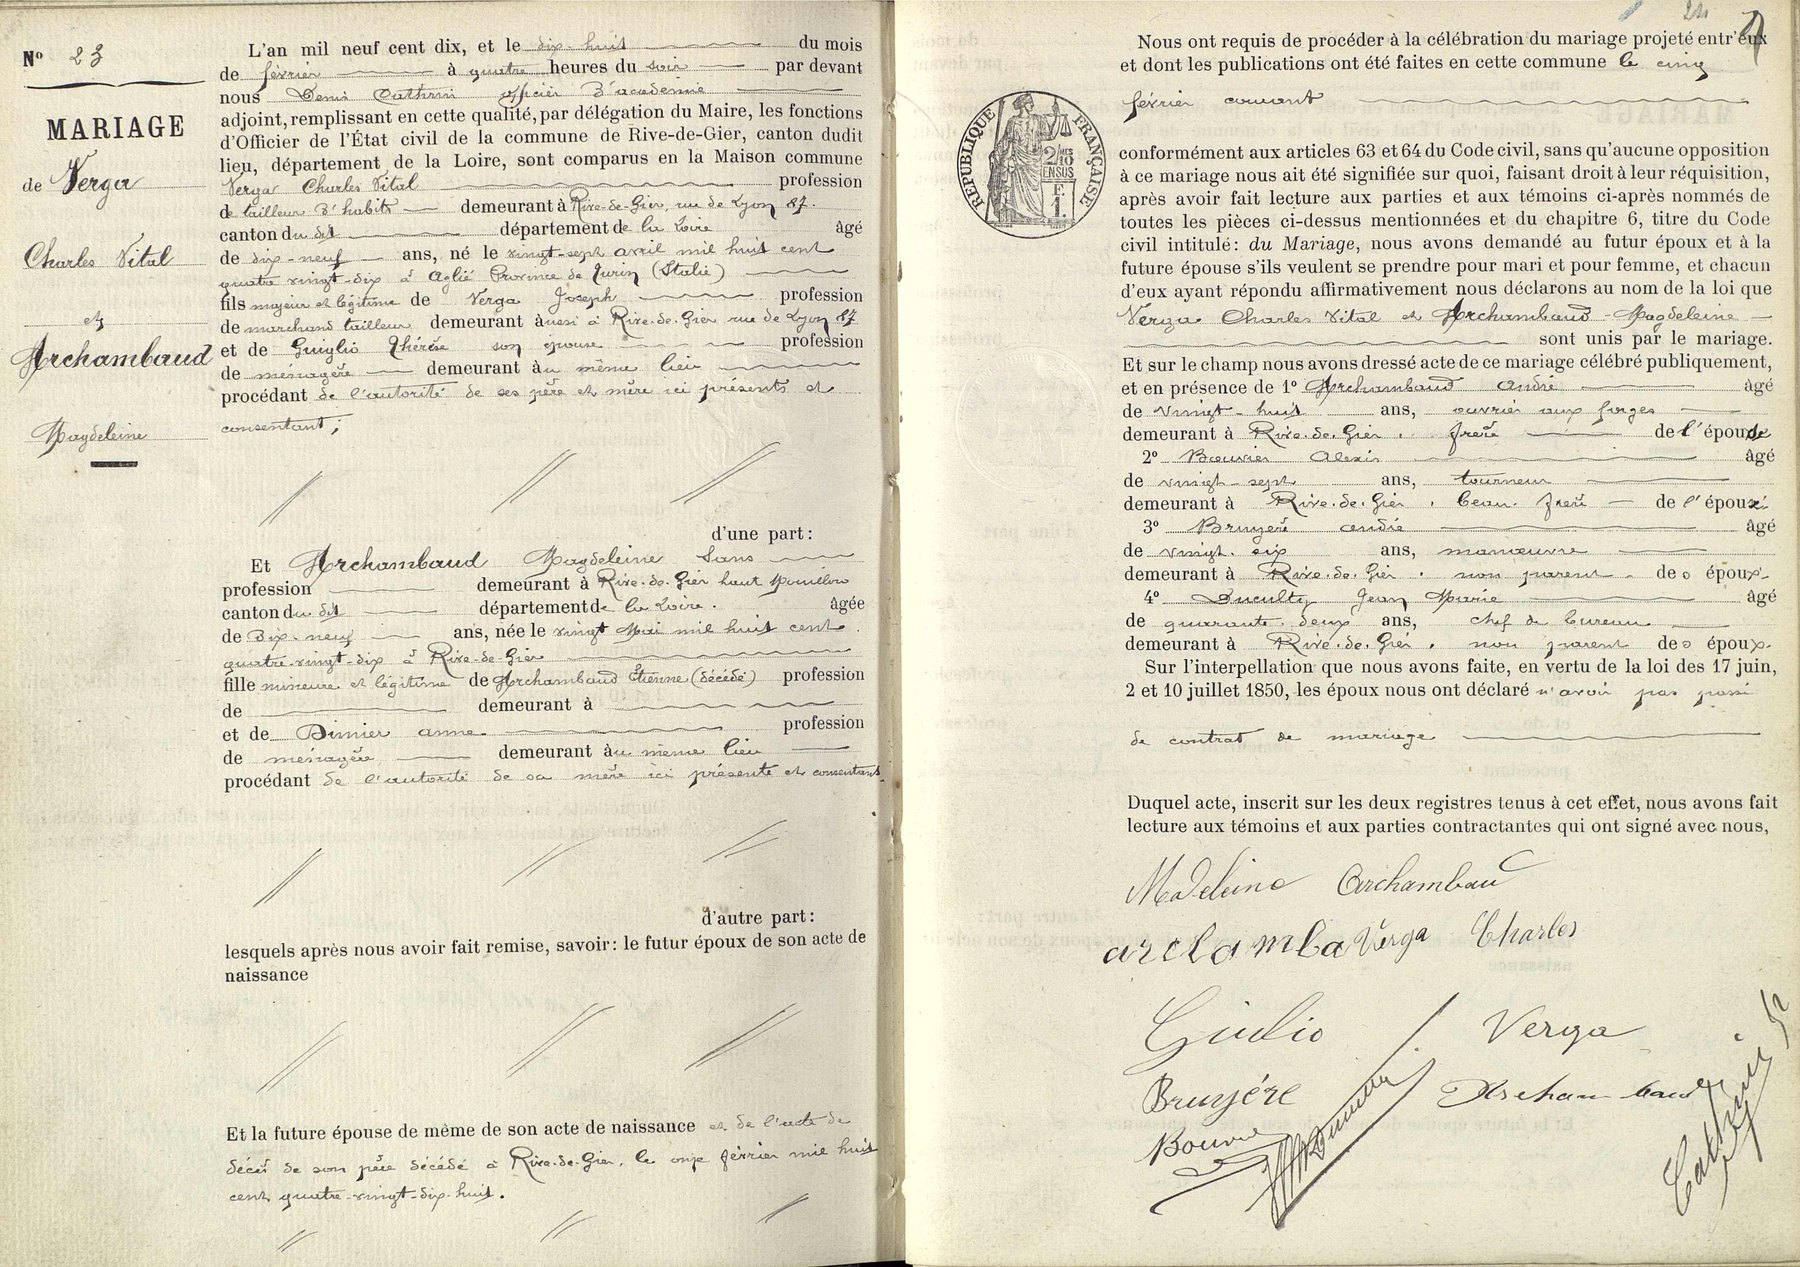 Nº 23
MARIAGE
de Verga
Charles Vital
et
Archambaud
Magdeleine
L'an mil neuf cent dix, et le dix-huit du mois
de février à quatre heures du soir par devant
nous Denis Cathrin officier d'académie
adjoint, remplissant en cette qualité, par délégation du Maire, les fonctions
d'Officier de l'État civil de la commune de Rive-de-Gier, canton dudit
lieu, département de la Loire, sont comparus en la Maison commune
Verga Charles Vital profession
de tailleur d'habits demeurant à Rive-de-Gier, rue de Lyon 87.
canton du dit département de la Loire âgé
de dix-neuf ans, né le vingt-sept avril mil huit cent
quatre vingt-dix à Aglié Province de Turin (Italie)
fils majeur et légitime de Verga Joseph profession
de marchand tailleur demeurant aussi à Rive-de-Gier rue de Lyon 87
et de Guiglio Thérèse son épouse profession
de ménagère demeurant au même lieu
procédant de l'autorité de ses père et mère ici présents et
consentant;
d'une part:
Et Archambaud Magdeleine Sans
profession demeurant à Rive-de-Gier haut Mouillon
canton du dit département de la Loire. âgée
de Dix-neuf ans, née le vingt Mai mil huit cent
quatre-vingt-dix à Rive-de-Gier
fille mineure et légitime de Archambaud Étienne (décédé) profession
de demeurant à
et de Dimier Anne profession
de ménagère demeurant au même lieu
procédant de l'autorité de sa mère ici présente et consentant.
d'autre part:
lesquels après nous avoir fait remise, savoir: le futur époux de son acte de
naissance
Et la future épouse de même de son acte de naissance et de l'acte de
décès de son père décédé à Rive-de-Gier, le onze février mil huit
cent quatre-vingt-dix-huit.
24
Nous ont requis de procéder à la célébration du mariage projeté entr'eux
et dont les publications ont été faites en cette commune le cinq
février courant
RÉPUBLIQUE FRANÇAISE
2/10 EN SUS
F. 1.
conformément aux articles 63 et 64 du Code civil, sans qu'aucune opposition
à ce mariage nous ait été signifiée sur quoi, faisant droit à leur réquisition,
après avoir fait lecture aux parties et aux témoins ci-après nommés de
toutes les pièces ci-dessus mentionnées et du chapitre 6, titre du Code
civil intitulé: du Mariage, nous avons demandé au futur époux et à la
future épouse s'ils veulent se prendre pour mari et pour femme, et chacun
d'eux ayant répondu affirmativement nous déclarons au nom de la loi que
Verga Charles Vital et Archambaud Magdeleine
sont unis par le mariage.
Et sur le champ nous avons dressé acte de ce mariage célébré publiquement,
et en présence de 1º Archambaud André âgé
de vingt-huit ans, ouvrier aux forges
demeurant à Rive-de-Gier. frère de l'épouse
2º Bouvier Alexis âgé
de vingt-sept ans, tourneur
demeurant à Rive-de-Gier. beau-frère de l'épouse
3º Bruyère André âgé
de vingt-six ans, manœuvre
demeurant à Rive-de-Gier. non parent des époux.
4º Duculty Jean Marie âgé
de quarante-deux ans, chef de bureau
demeurant à Rive-de-Gier. non parent des époux.
Sur l'interpellation que nous avons faite, en vertu de la loi des 17 juin,
2 et 10 juillet 1850, les époux nous ont déclaré n'avoir pas passé
de contrat de mariage
Duquel acte, inscrit sur les deux registres tenus à cet effet, nous avons fait
lecture aux témoins et aux parties contractantes qui ont signé avec nous,
Madeleine Archambaud
archamba Verga Charles
Giulio Verga
Bruyére Archambaud
Bouvier